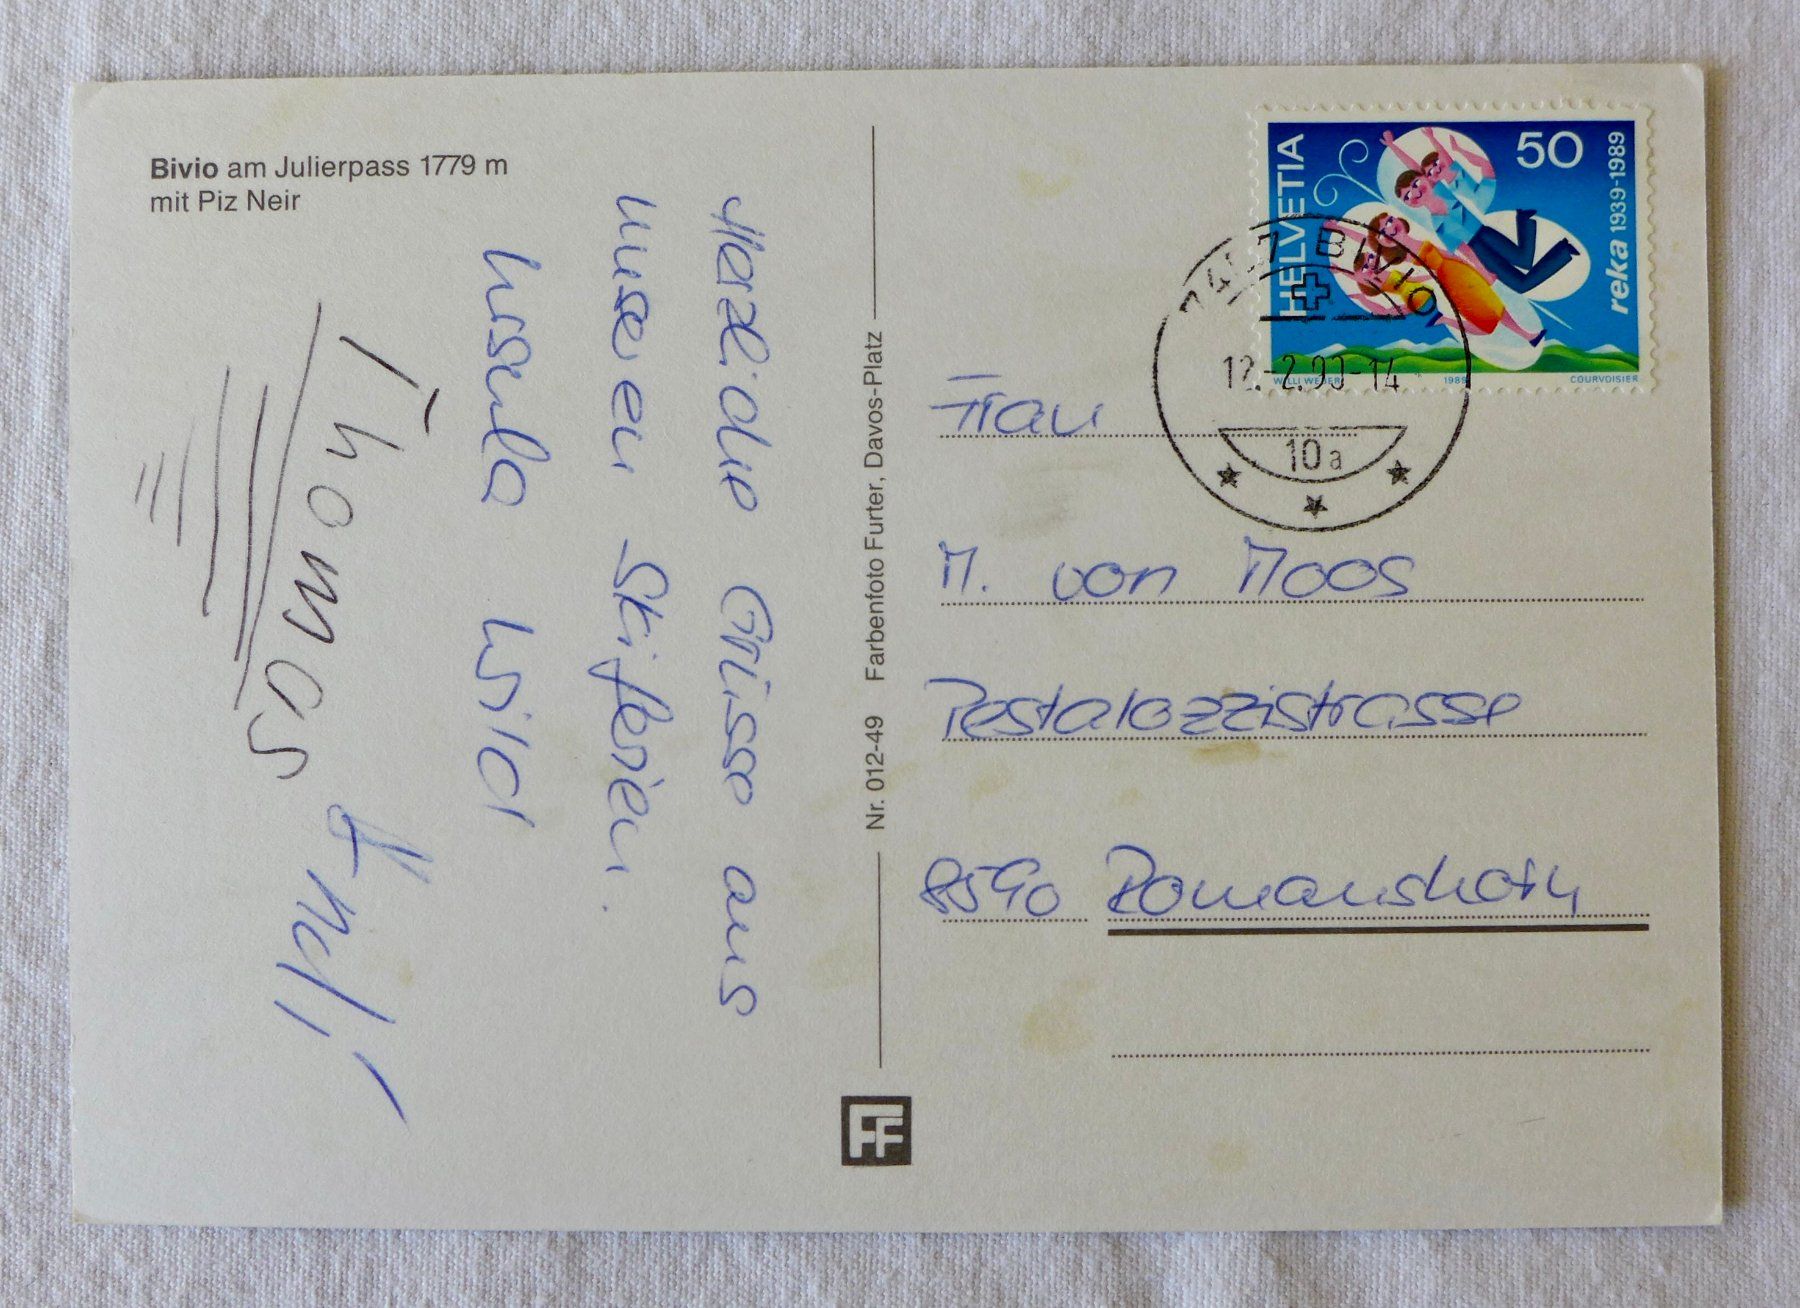 Bivio am Julierpass 1779 m
mit Piz Neir
Herzliche Grüsse aus
unseren Skiferien.
Ursula Wild
Thomas
Andi
Nr. 012-49 Farbenfoto Furter, Davos-Platz
FF
HELVETIA
50
reka 1939-1989
WILLI WEBER 1989 COURVOISIER
7457 BIVIO
12.-2.90-14
10a
Frau
M. von Moos
Pestalozzistrasse
8590 Romanshorn